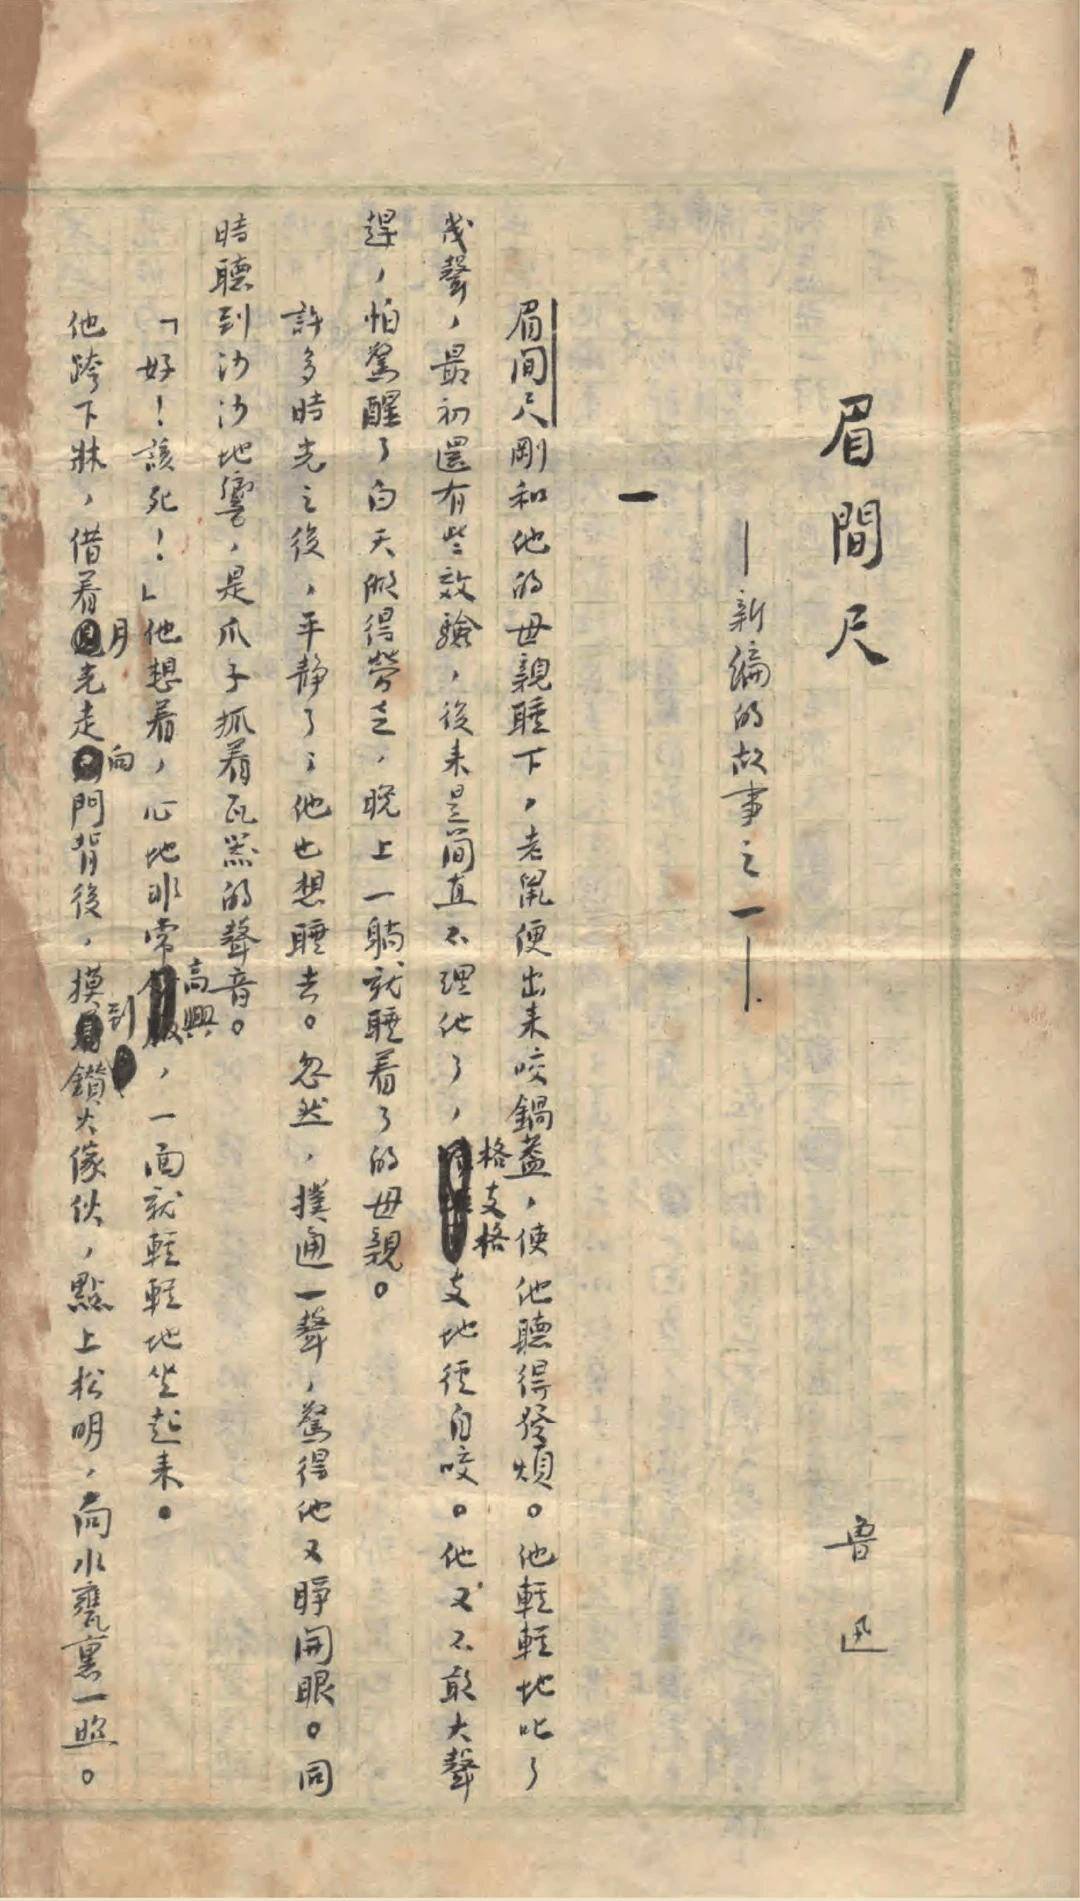 1
眉間尺
——新編的故事之一——
魯迅
一
眉間尺剛和他的母親睡下，老鼠便出来咬鍋蓋，使他聽得發煩。他輕輕地叱了
幾聲，最初還有些效驗，後来是简直不理他了，格支格支地徑自咬。他又不敢大聲
趕，怕驚醒了白天做得勞乏，晚上一躺就睡着了的母親。
許多時光之後，平静了；他也想睡去。忽然，撲通一聲，驚得他又睜開眼。同
時聽到沙沙地響，是爪子抓着瓦器的聲音。
「好！該死！」他想着，心地非常高興，一面就輕輕地坐起来。
他跨下牀，借着月光走向門背後，摸到鑽火傢伙，點上松明，向水甕裏一照。